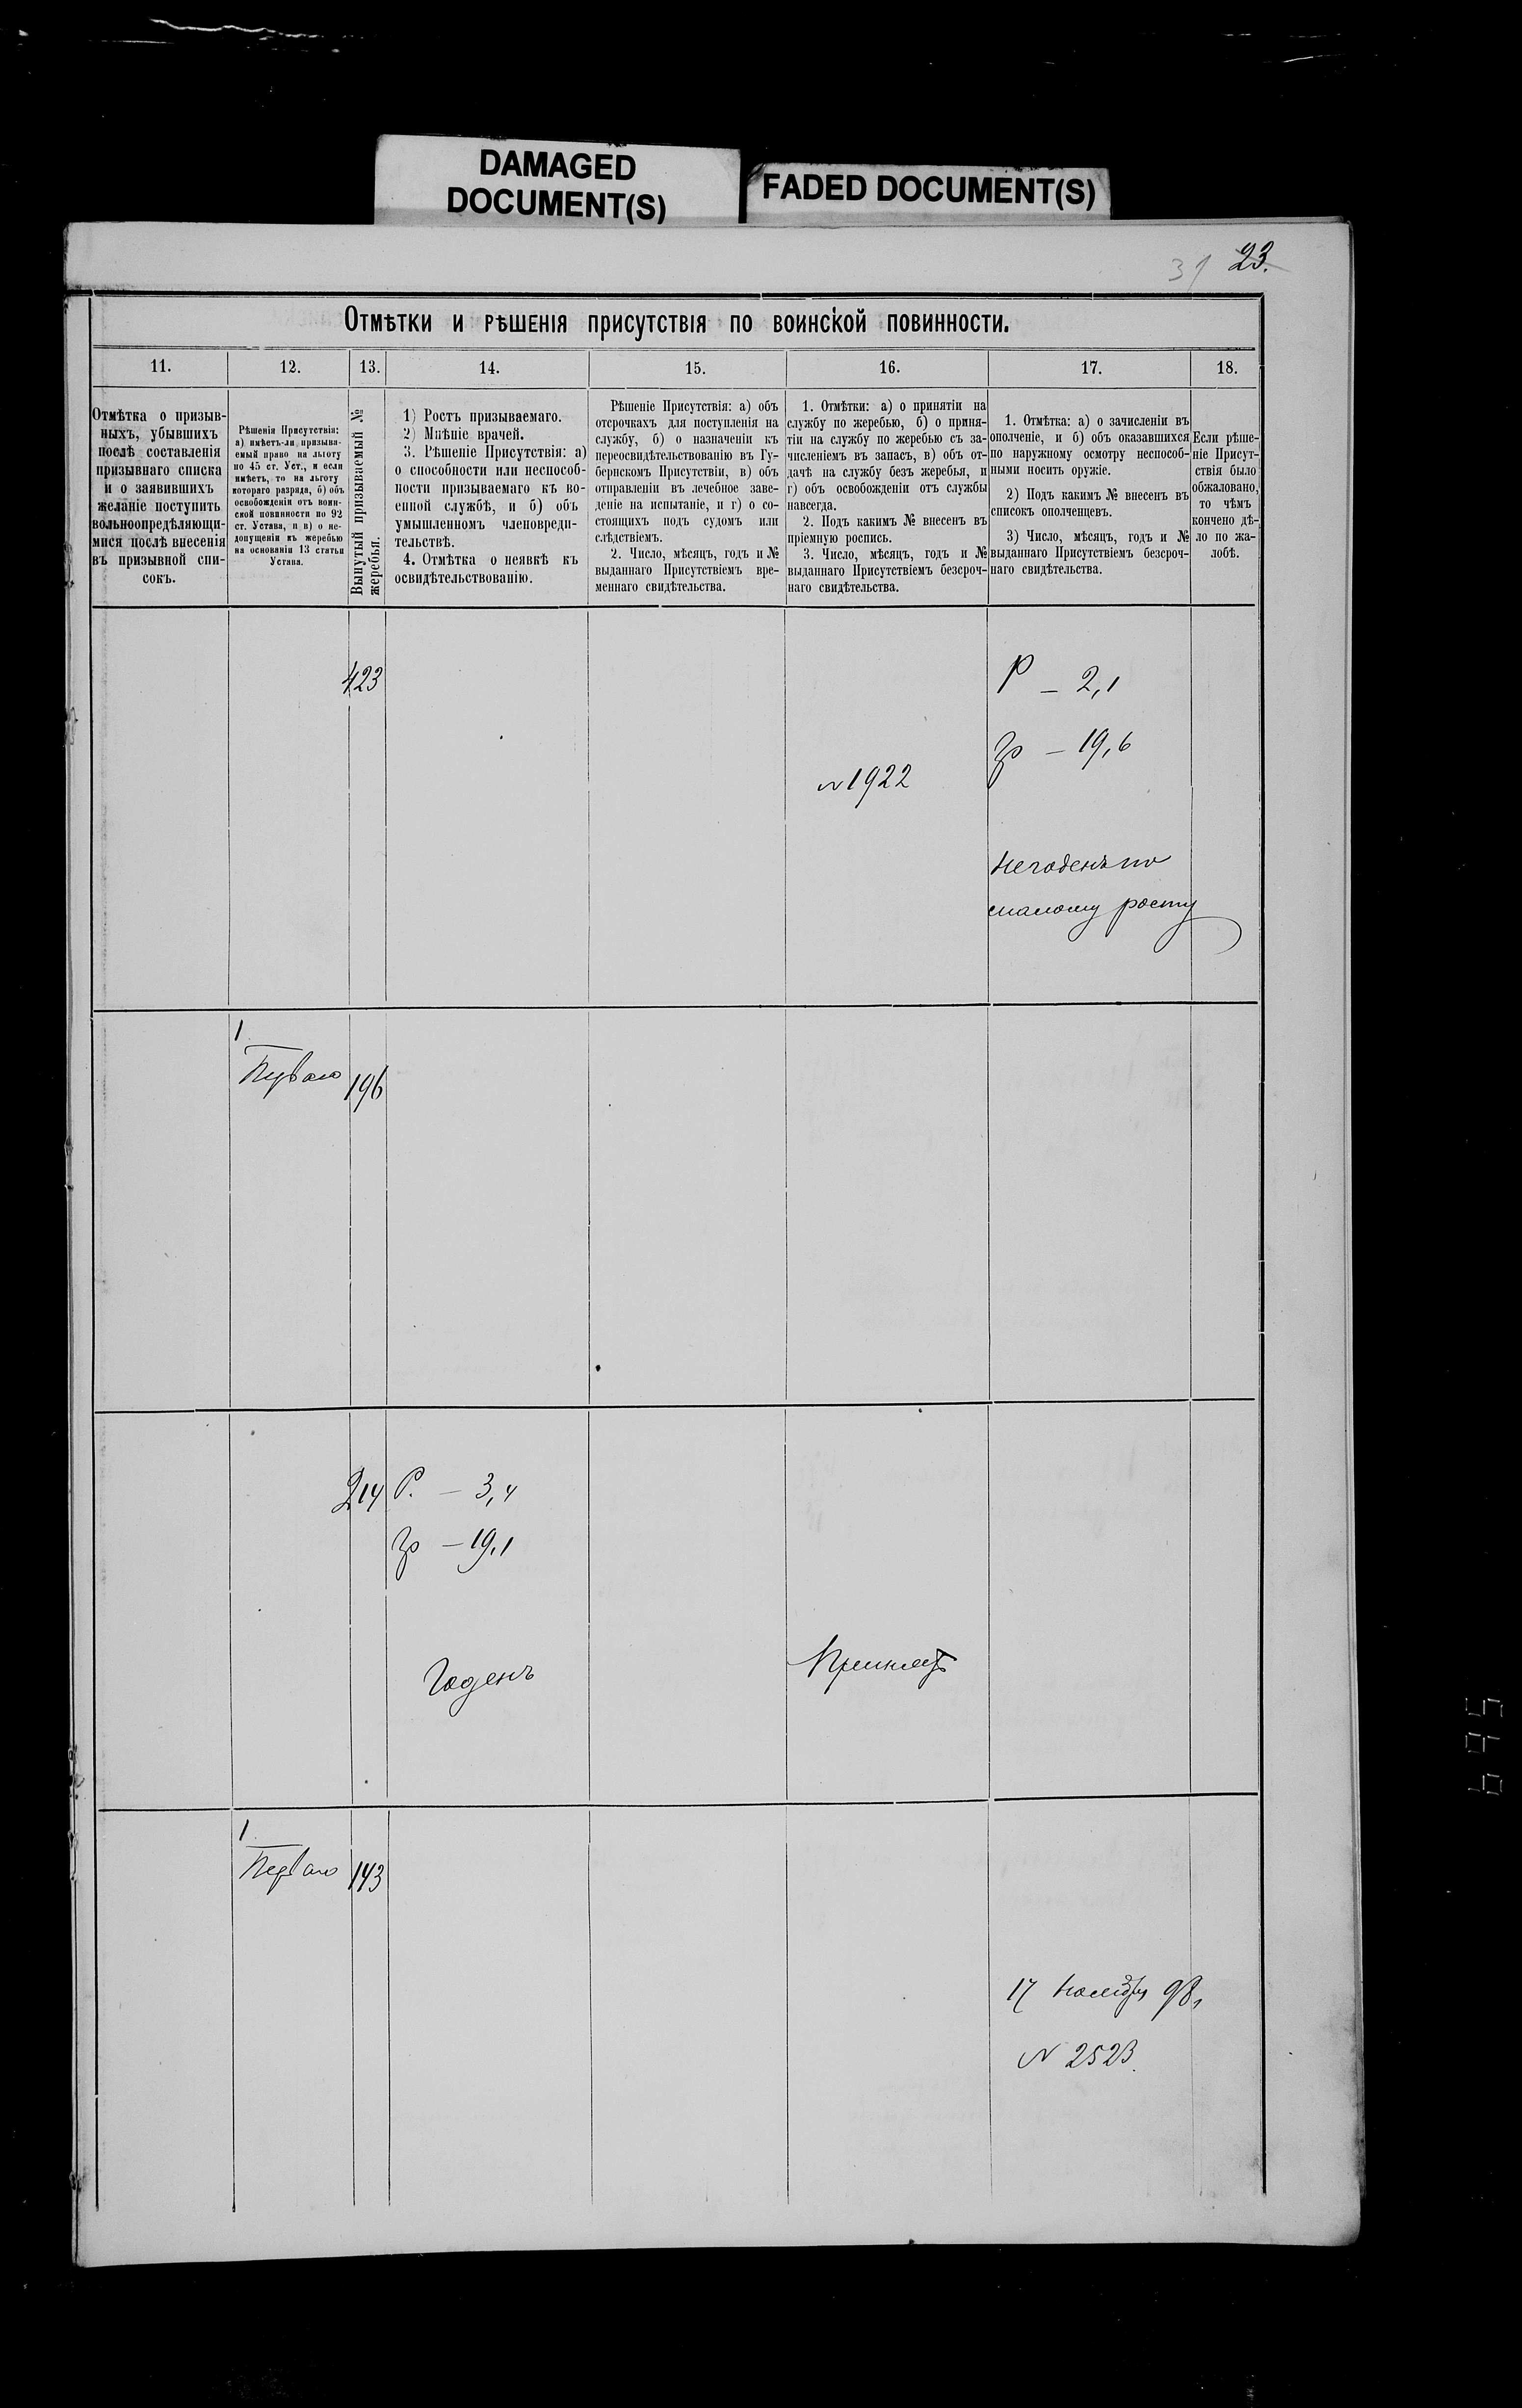 DAMAGED
DOCUMENT(S)
FADED DOCUMENT(S)
31 23.
Отмѣтки и рѣшенія присутствія по воинской повинности.
11. 12. 13. 14. 15. 16. 17. 18.
Отмѣтка о призыв-
ныхъ, убывшихъ
послѣ составленія
призывнаго списка
и о заявившихъ
желаніе поступить
вольноопредѣляющи-
мися послѣ внесенія
въ призывной спи-
сокъ.
Рѣшенія Присутствія:
а) имѣетъ-ли призыва-
емый право на льготу
по 45 ст. Уст., и если
имѣетъ, то на льготу
котораго разряда, б) объ
освобожденіи отъ воин-
ской повинности по 92
ст. Устава, и в) о не-
допущеніи къ жеребью
на основаніи 13 статьи
Устава.
Вынутый призываемый №
жеребья.
1) Ростъ призываемаго.
2) Мнѣніе врачей.
3. Рѣшеніе Присутствія: а)
о способности или неспособ-
ности призываемаго къ во-
енной службѣ, и б) объ
умышленномъ членовреди-
тельствѣ.
4. Отмѣтка о неявкѣ къ
освидѣтельствованію.
Рѣшеніе Присутствія: а) объ
отсрочкахъ для поступленія на
службу, б) о назначеніи къ
переосвидѣтельствованію въ Гу-
бернскомъ Присутствіи, в) объ
отправленіи въ лечебное заве-
деніе на испытаніе, и г) о со-
стоящихъ подъ судомъ или
слѣдствіемъ.
2. Число, мѣсяцъ, годъ и №
выданнаго Присутствіемъ вре-
меннаго свидѣтельства.
1. Отмѣтки: а) о принятіи на
службу по жеребью, б) о приня-
тіи на службу по жеребью съ за-
численіемъ въ запасъ, в) объ от-
дачѣ на службу безъ жеребья, и
г) объ освобожденіи отъ службы
навсегда.
2. Подъ какимъ № внесенъ въ
пріемную роспись.
3. Число, мѣсяцъ, годъ и №
выданнаго Присутствіемъ безсроч-
наго свидѣтельства.
1. Отмѣтка: а) о зачисленіи въ
ополченіе, и б) объ оказавшихся
по наружному осмотру неспособ-
ными носить оружіе.
2) Подъ какимъ № внесенъ въ
списокъ ополченцевъ.
3) Число, мѣсяцъ, годъ и №
выданнаго Присутствіемъ безсроч-
наго свидѣтельства.
Если рѣше-
ніе Присут-
ствія было
обжаловано,
то чѣмъ
кончено дѣ-
ло по жа-
лобѣ.
423
Р – 2,1
гр – 19,6
№ 1922
Негоденъ по
малому росту
1
Перваго 196
214 Р. – 3,4
гр – 19,1
Годенъ
Принятъ
1
Перваго 143
17 Ноября 98,
№ 2523.
695